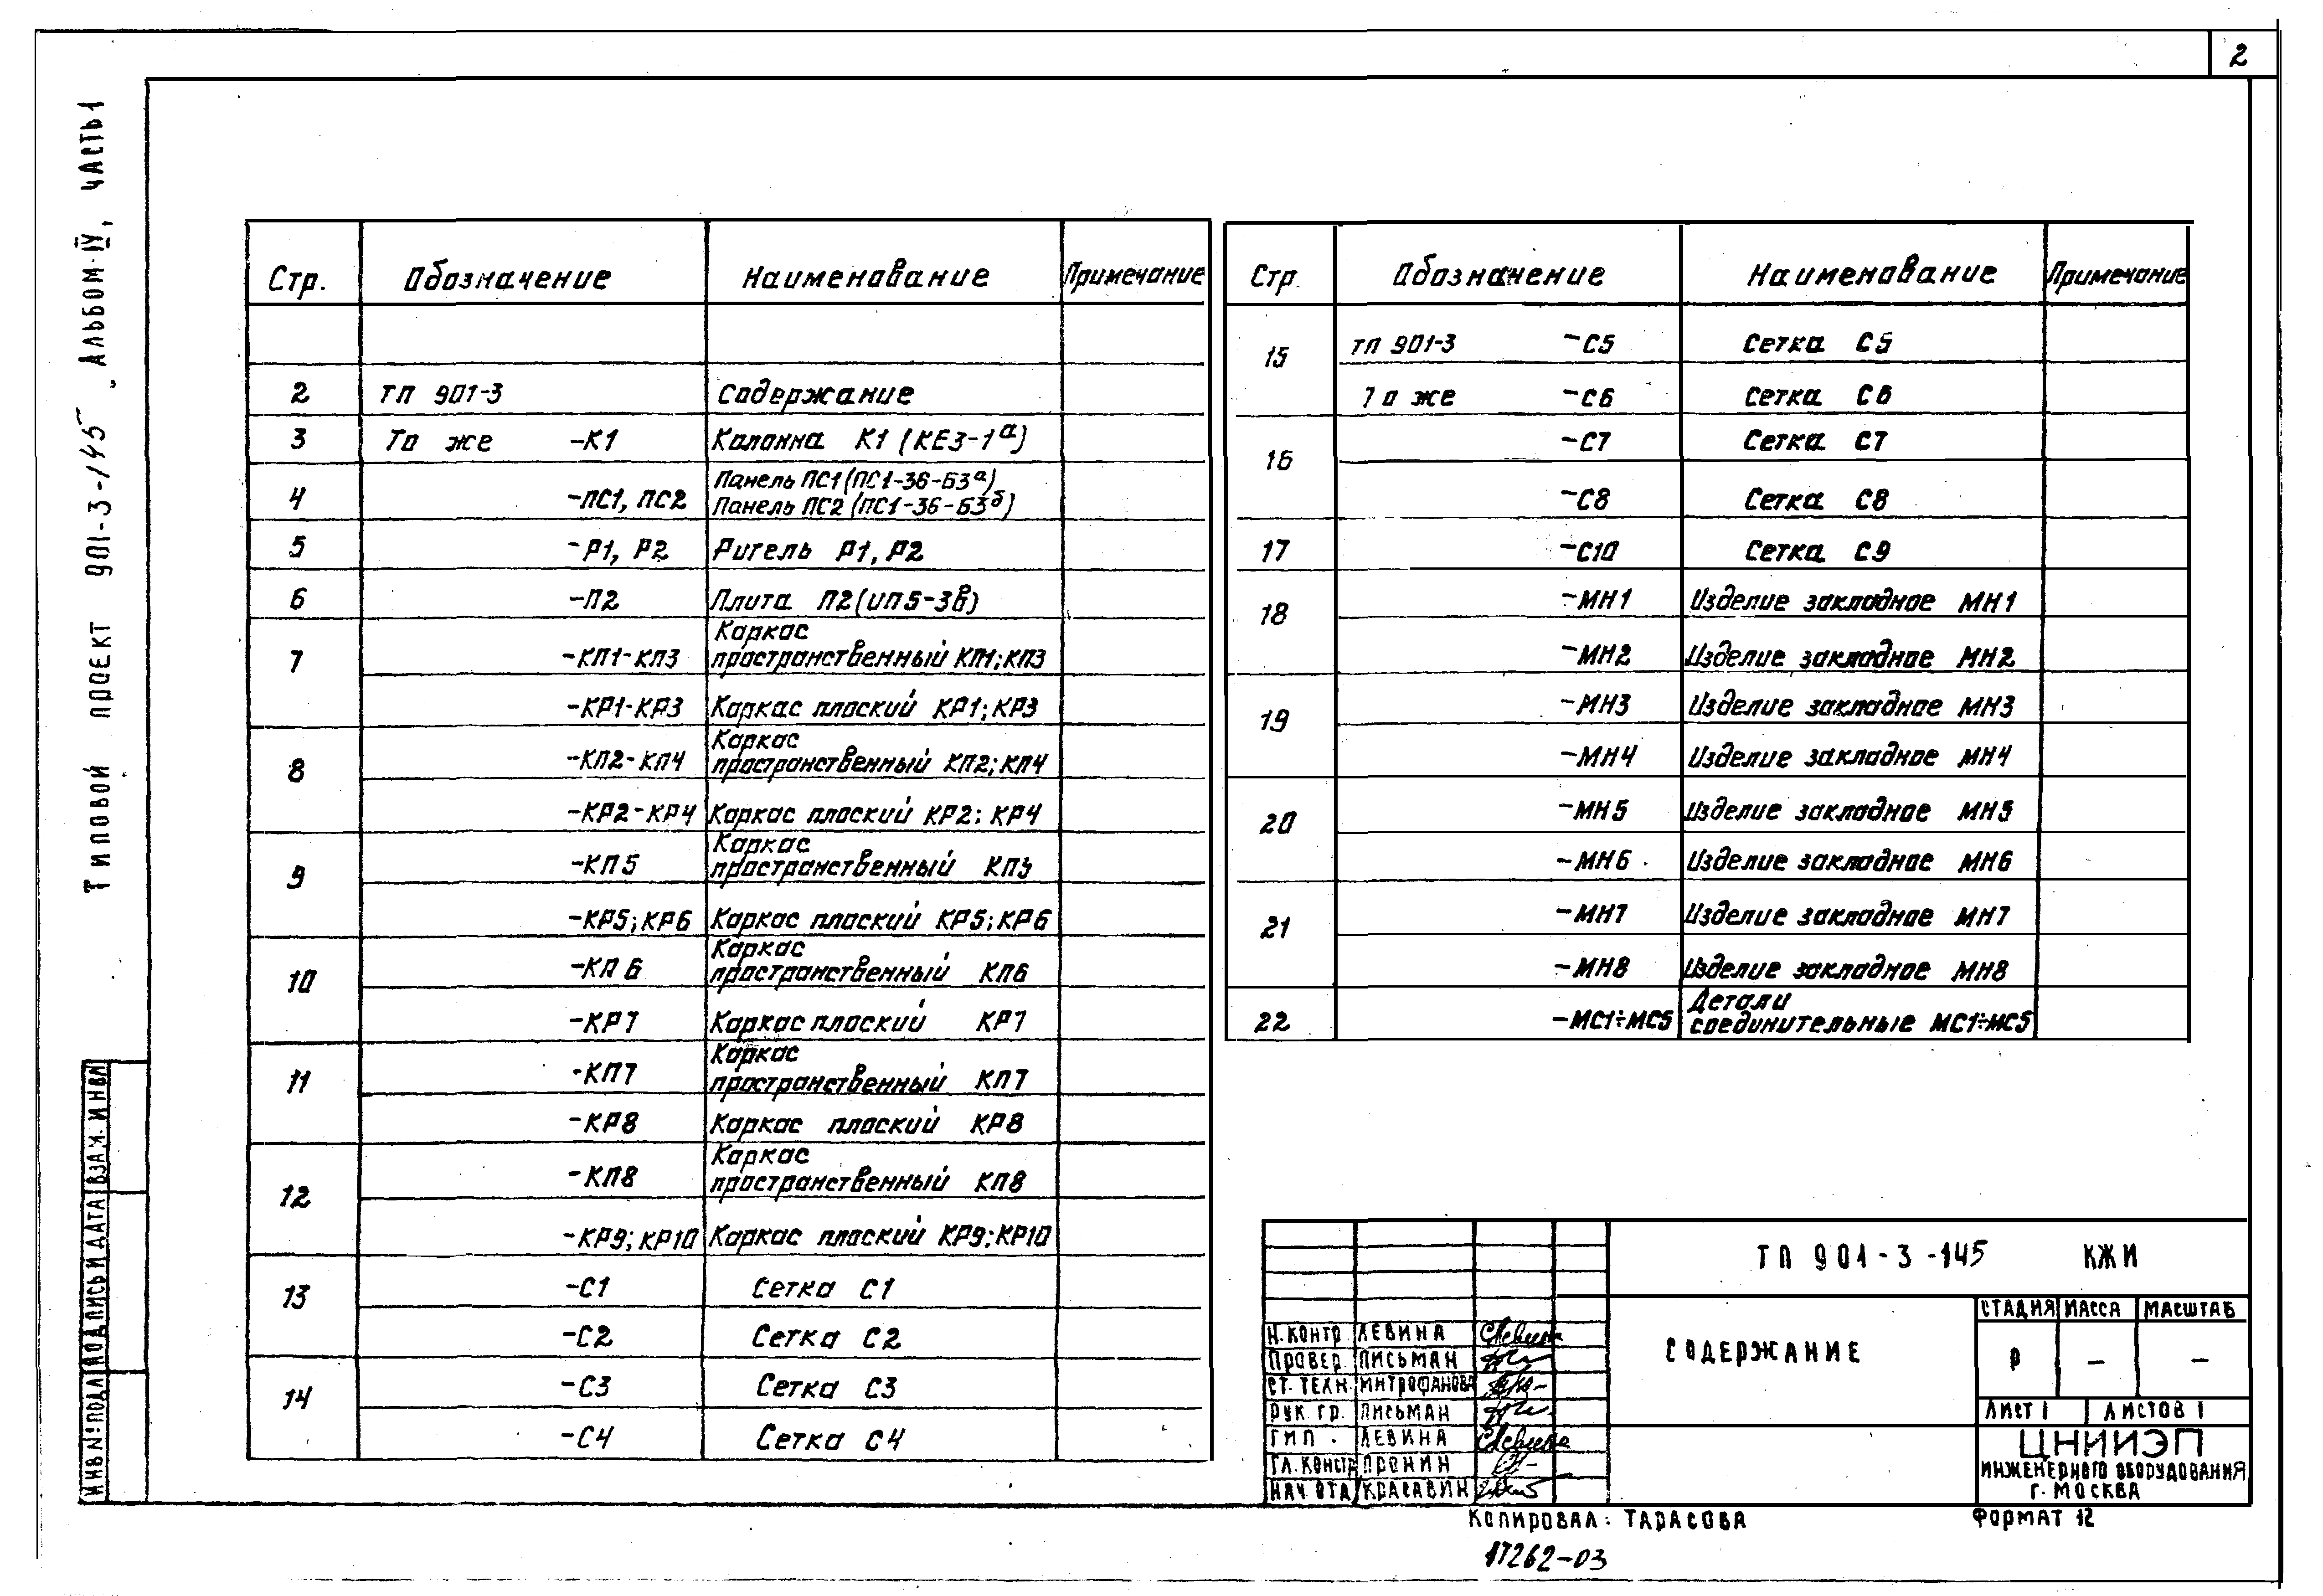 2
Типовой проект 901-3-145 Альбом-IV, часть 1
Стр. Обозначение Наименование Примечание
2 ТП 901-3 Содержание
3 То же -К1 Колонна К1 (КЕ3-1а)
4 -ПС1, ПС2 Панель ПС1 (ПС1-36-Б3а)
Панель ПС2 (ПС1-36-Б3б)
5 -Р1, Р2 Ригель Р1, Р2
6 -П2 Плита П2 (ИП5-3в)
7 -КП1-КП3 Каркас
пространственный КП1; КП3
-КР1-КР3 Каркас плоский КР1; КР3
8 -КП2-КП4 Каркас
пространственный КП2; КП4
-КР2-КР4 Каркас плоский КР2; КР4
9 -КП5 Каркас
пространственный КП5
-КР5; КР6 Каркас плоский КР5; КР6
10 -КП6 Каркас
пространственный КП6
-КР7 Каркас плоский КР7
11 -КП7 Каркас
пространственный КП7
-КР8 Каркас плоский КР8
12 -КП8 Каркас
пространственный КП8
-КР9; КР10 Каркас плоский КР9; КР10
13 -С1 Сетка С1
-С2 Сетка С2
14 -С3 Сетка С3
-С4 Сетка С4
Стр. Обозначение Наименование Примечание
15 ТП 901-3 -С5 Сетка С5
То же -С6 Сетка С6
16 -С7 Сетка С7
-С8 Сетка С8
17 -С10 Сетка С9
18 -МН1 Изделие закладное МН1
-МН2 Изделие закладное МН2
19 -МН3 Изделие закладное МН3
-МН4 Изделие закладное МН4
20 -МН5 Изделие закладное МН5
-МН6 Изделие закладное МН6
21 -МН7 Изделие закладное МН7
-МН8 Изделие закладное МН8
22 -МС1÷МС5 Детали
соединительные МС1÷МС5
ИНВ № ПОДЛ ПОДПИСЬ И ДАТА ВЗАМ. ИНВ №
ТП 901-3-145 КЖИ
СОДЕРЖАНИЕ
СТАДИЯ МАССА МАСШТАБ
Р – –
ЛИСТ 1 ЛИСТОВ 1
ЦНИИЭП
ИНЖЕНЕРНОГО ОБОРУДОВАНИЯ
Г. МОСКВА
Н.КОНТР. ЛЕВИНА
ПРОВЕР. ПИСЬМАН
СТ. ТЕХН. МИТРОФАНОВА
РУК. ГР. ПИСЬМАН
ГИП ЛЕВИНА
ГЛ.КОНСТР ПРОНИН
НАЧ ОТД КРАСАВИН
Копировал: ТАРАСОВА ФОРМАТ 12
17262-03